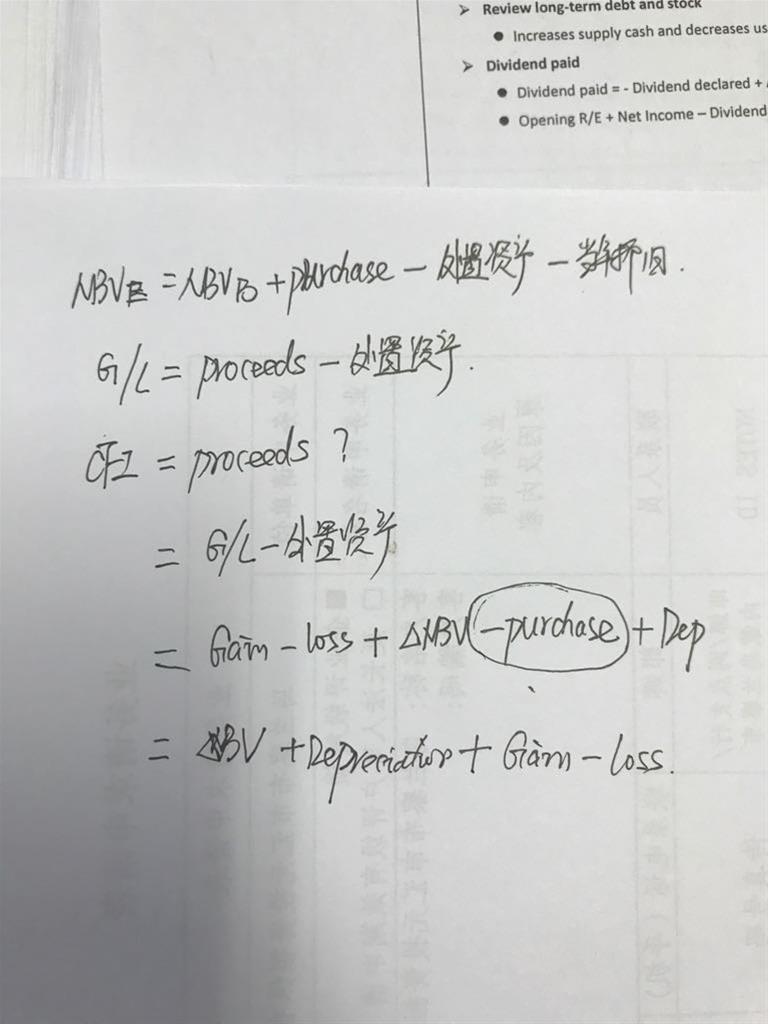 ➤ Review long-term debt and stock
● Increases supply cash and decreases us
➤ Dividend paid
● Dividend paid = - Dividend declared +
● Opening R/E + Net Income – Dividend
NBVE = NBVB + purchase - 处置资产 - 当年折旧.
G/L = proceeds - 处置资产.
CFI = proceeds ?
= G/L - 处置资产
= Gain - loss + ΔNBV - purchase + Dep
= ΔNBV + Depreciation + Gain - loss.